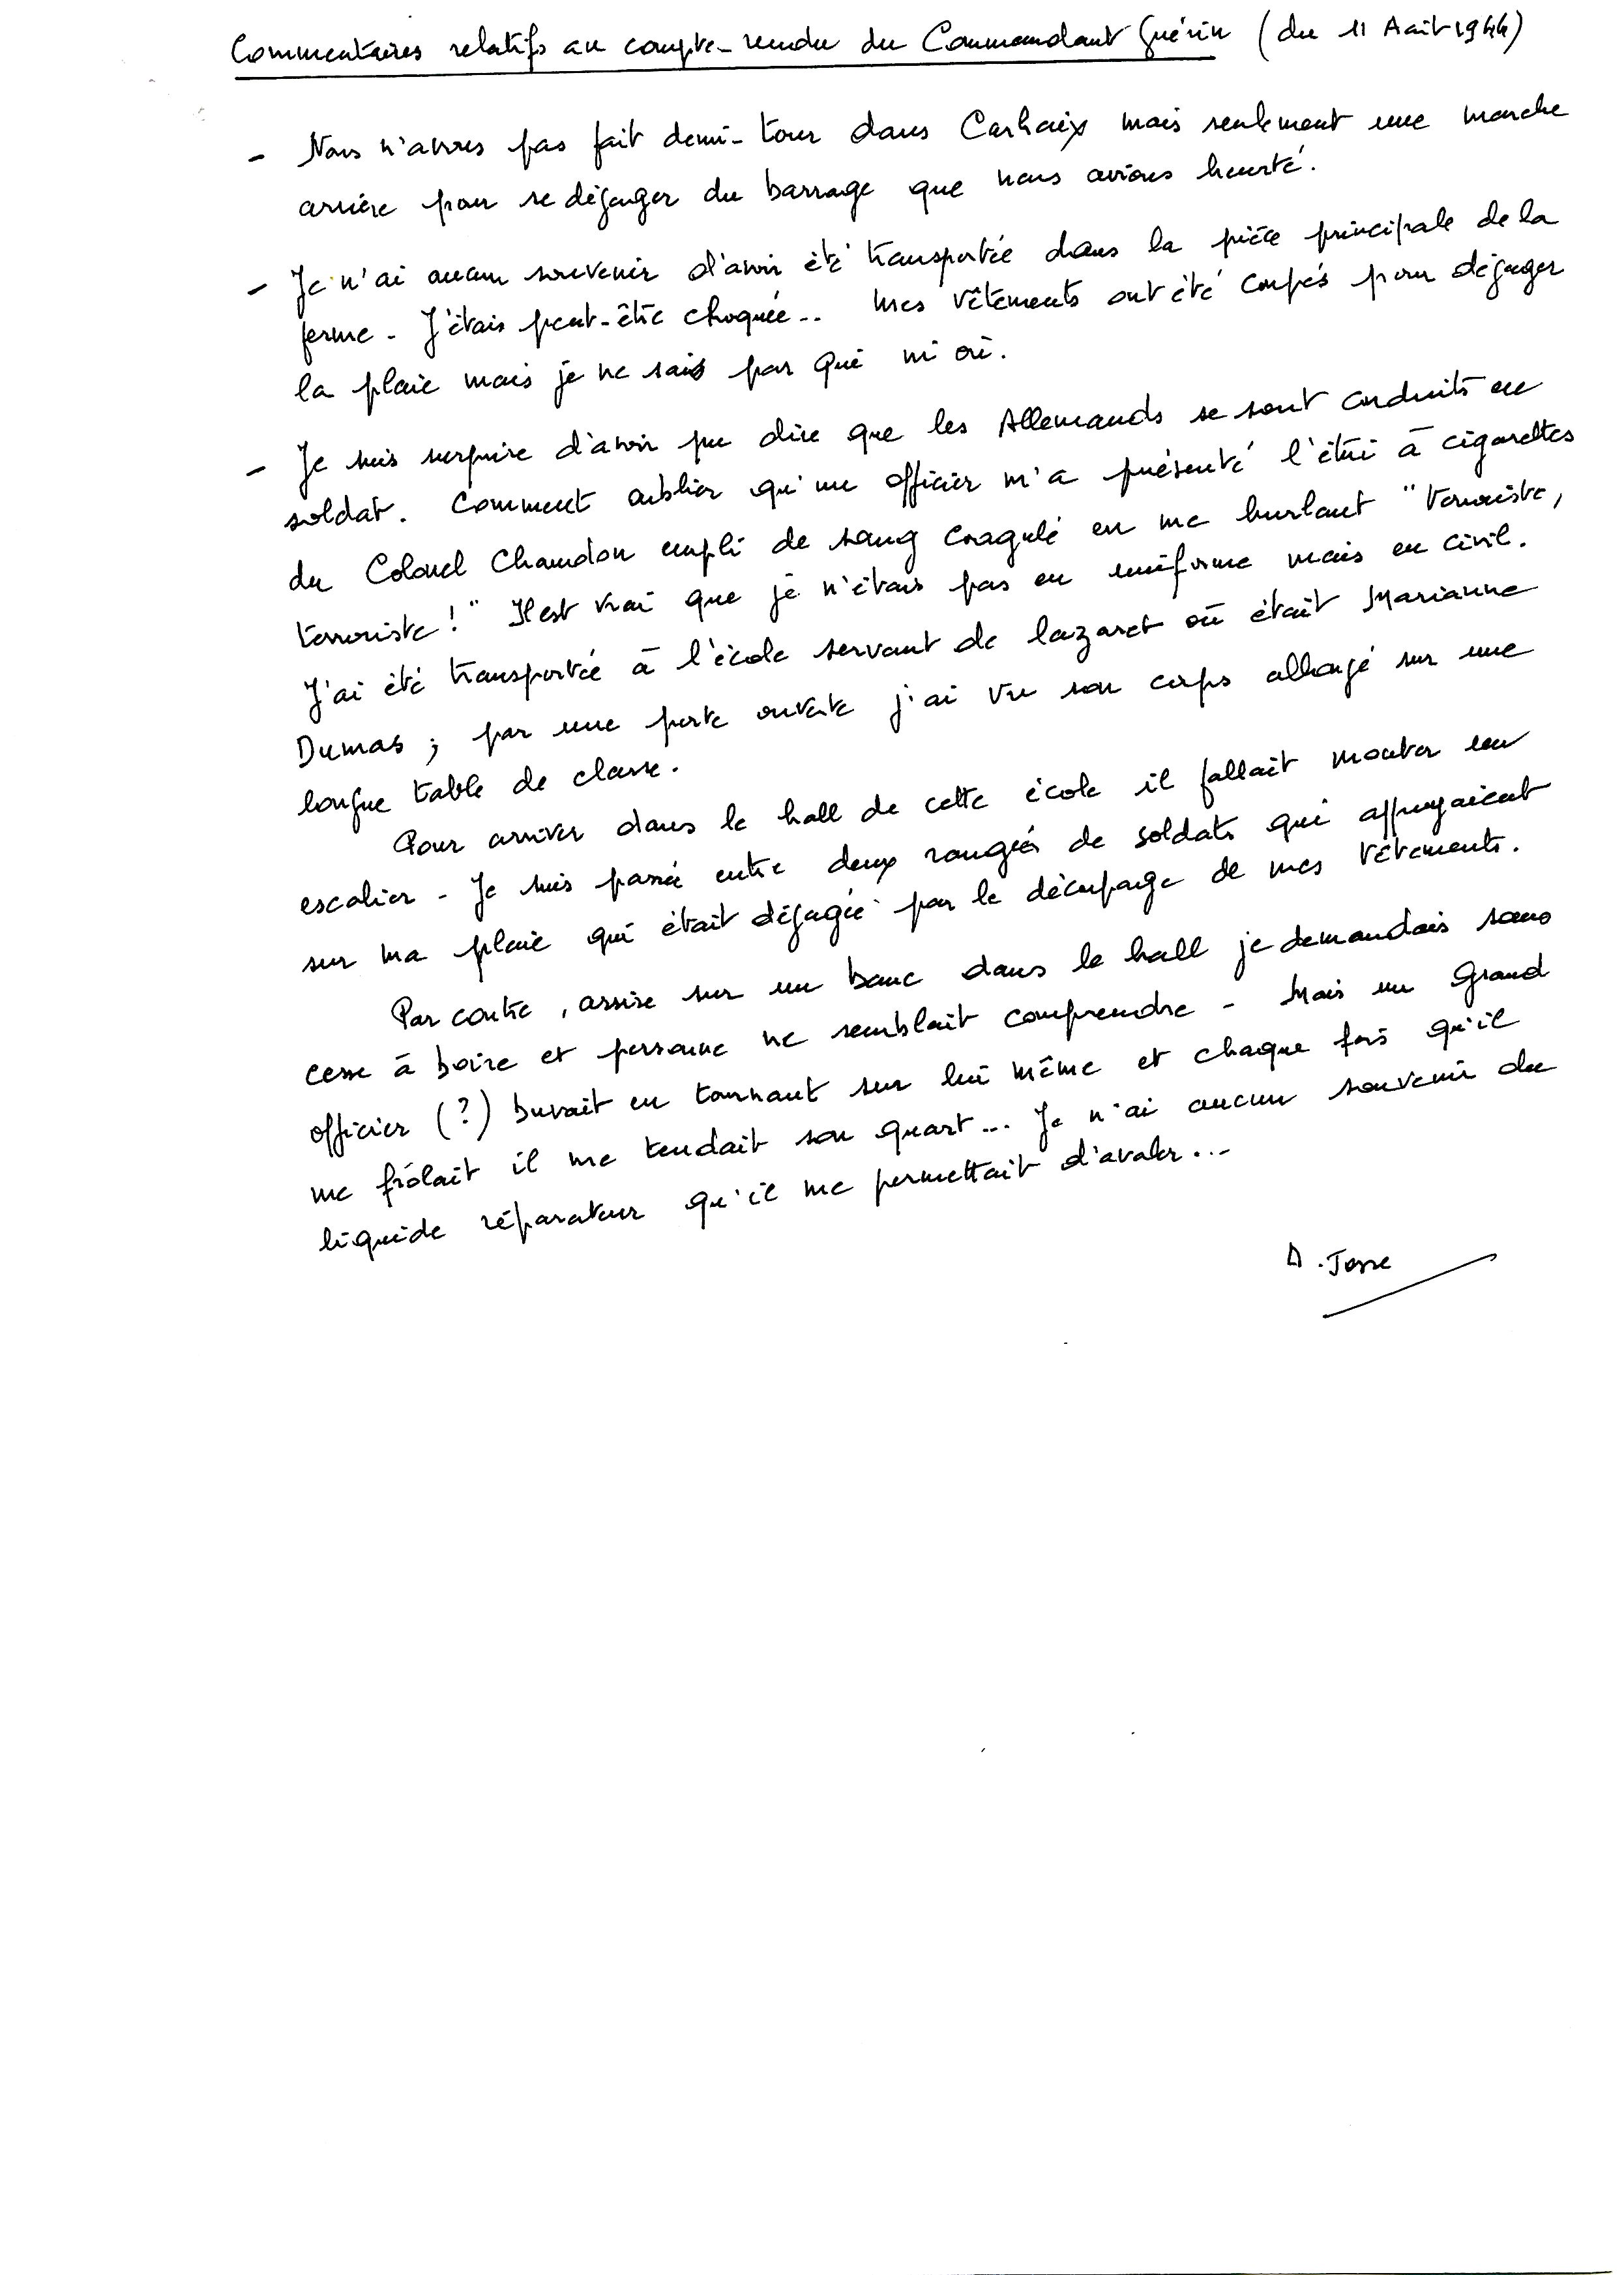 Commentaires relatifs au compte-rendu du Commandant Guérin (du 11 Août 1944)
- Nous n'avons pas fait demi-tour dans Carhaix mais seulement une marche
arrière pour se dégager du barrage que nous avions heurté.
- Je n'ai aucun souvenir d'avoir été transportée dans la pièce principale de la
ferme - J'étais peut-être choquée.. Mes vêtements ont été coupés pour dégager
la plaie mais je ne sais par qui ni où.
- Je suis surprise d'avoir pu dire que les Allemands se sont conduits en
soldat. Comment oublier qu'un officier m'a présenté l'étui à cigarettes
du Colonel Chandon empli de sang coagulé en me hurlant "terroriste,
terroriste !" Il est vrai que je n'étais pas en uniforme mais en civil.
J'ai été transportée à l'école servant de lazaret où était Marianne
Dumas ; par une porte ouverte j'ai vu son corps allongé sur une
longue table de classe.
Pour arriver dans le hall de cette école il fallait monter un
escalier - Je suis passée entre deux rangées de soldats qui appuyaient
sur ma plaie qui était dégagée par le découpage de mes vêtements.
Par contre, assise sur un banc dans le hall je demandais sans
cesse à boire et personne ne semblait comprendre - Mais un grand
officier (?) buvait en tournant sur lui même et chaque fois qu'il
me frôlait il me tendait son quart... Je n'ai aucun souvenir du
liquide réparateur qu'il me permettait d'avaler...
A. Josse